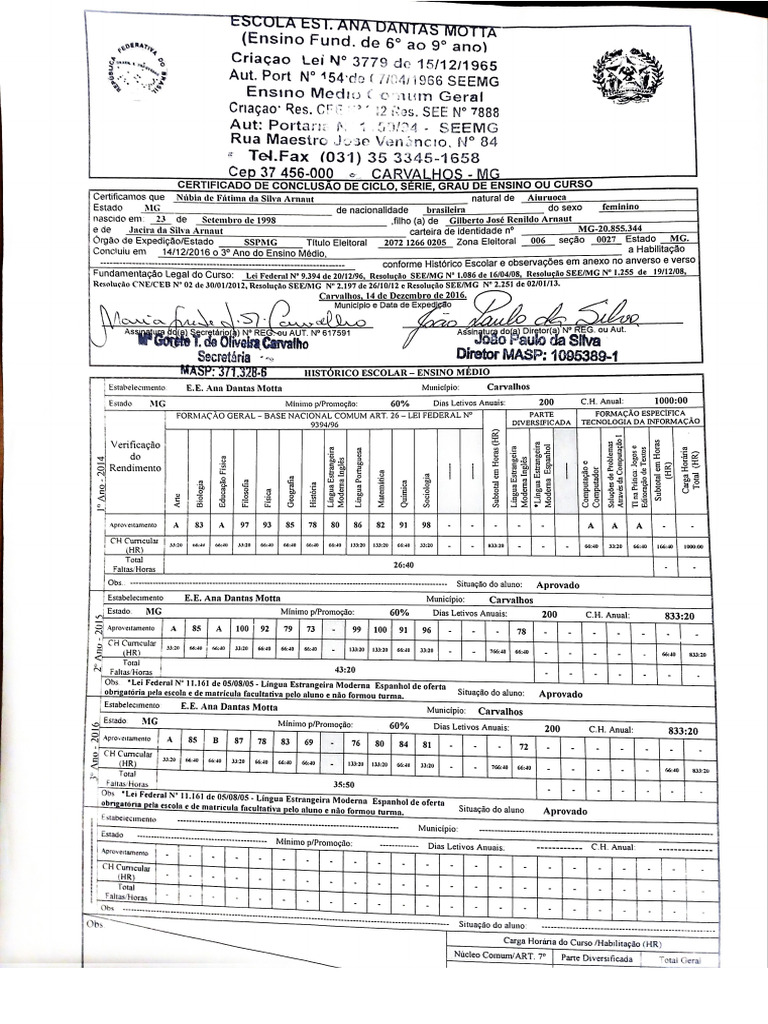 ESCOLA EST. ANA DANTAS MOTTA
(Ensino Fund. de 6º ao 9º ano)
Criaçao Lei Nº 3779 de 15/12/1965
Aut. Port Nº 154 de 07/04/1966 SEEMG
Ensino Medio Comum Geral
Criaçao: Res. Res. SEE Nº 7888
Aut: Portaria - SEEMG
Rua Maestro Jose Venâncio, Nº 84
Tel.Fax (031) 35 3345-1658
Cep 37 456-000 CARVALHOS - MG
REPÚBLICA FEDERATIVA DO BRASIL
CERTIFICADO DE CONCLUSÃO DE CICLO, SÉRIE, GRAU DE ENSINO OU CURSO
Certificamos que Núbia de Fátima da Silva Arnaut natural de Aiuruoca
Estado MG de nacionalidade brasileira do sexo feminino
nascido em: 23 de Setembro de 1998 ,filho (a) de Gilberto José Renildo Arnaut
e de Jacira da Silva Arnaut carteira de identidade nº MG-20.855.344
Órgão de Expedição/Estado SSPMG Título Eleitoral 2072 1266 0205 Zona Eleitoral 006 seção 0027 Estado MG.
Concluiu em 14/12/2016 o 3º Ano do Ensino Médio, a Habilitação
conforme Histórico Escolar e observações em anexo no anverso e verso
Fundamentação Legal do Curso: Lei Federal Nº 9.394 de 20/12/96, Resolução SEE/MG Nº 1.086 de 16/04/08, Resolução SEE/MG Nº 1.255 de 19/12/08,
Resolução CNE/CEB Nº 02 de 30/01/2012, Resolução SEE/MG Nº 2.197 de 26/10/12 e Resolução SEE/MG Nº 2.251 de 02/01/13.
Carvalhos, 14 de Dezembro de 2016.
Município e Data de Expedição
João Paulo da Silva
Assinatura do(a) Secretário(a) Nº REG. ou AUT. Nº 617591 Assinatura do(a) Diretor(a) Nº REG. ou Aut.
Mª Gorete T. de Oliveira Carvalho João Paulo da Silva
Secretária Diretor MASP: 1095389-1
MASP: 371,328-6 HISTÓRICO ESCOLAR – ENSINO MÉDIO
1º Ano - 2014
Estabelecimento E.E. Ana Dantas Motta Município: Carvalhos
Estado MG Mínimo p/Promoção: 60% Dias Letivos Anuais: 200 C.H. Anual: 1000:00
Verificação do Rendimento
FORMAÇÃO GERAL – BASE NACIONAL COMUM ART. 26 – LEI FEDERAL Nº 9394/96
PARTE DIVERSIFICADA
FORMAÇÃO ESPECÍFICA TECNOLOGIA DA INFORMAÇÃO
Arte
Biologia
Educação Física
Filosofia
Física
Geografia
História
Língua Estrangeira Moderna Inglês
Língua Portuguesa
Matemática
Química
Sociologia
Subtotal em Horas (HR)
Língua Estrangeira Moderna Inglês
*Língua Estrangeira Moderna Espanhol
Computação e Computador
Soluções de Problemas Através da Computação I
TI na Prática: Jogos e Editoração de Textos
Subtotal em Horas (HR)
Carga Horária Total (HR)
Aproveitamento A 83 A 97 93 85 78 80 86 82 91 98 - - - - - - A A A - -
CH Curricular (HR) 33:20 66:40 66:40 33:20 66:40 66:40 66:40 66:40 133:20 133:20 66:40 33:20 - - 833:20 - - - 66:40 33:20 66:40 166:40 1000:00
Total Faltas/Horas 26:40 - -
Obs. Situação do aluno: Aprovado
2º Ano - 2015
Estabelecimento E.E. Ana Dantas Motta Município: Carvalhos
Estado MG Mínimo p/Promoção: 60% Dias Letivos Anuais: 200 C.H. Anual: 833:20
Aproveitamento A 85 A 100 92 79 73 - 99 100 91 96 - - - 78 - - - - - - -
CH Curricular (HR) 33:20 66:40 66:40 33:20 66:40 66:40 66:40 - 133:20 133:20 66:40 33:20 - - 766:40 66:40 - - - - - 66:40 833:20
Total Faltas/Horas 43:20 - -
Obs *Lei Federal Nº 11.161 de 05/08/05 - Língua Estrangeira Moderna Espanhol de oferta
obrigatória pela escola e de matrícula facultativa pelo aluno e não formou turma. Situação do aluno: Aprovado
3º Ano - 2016
Estabelecimento: E.E. Ana Dantas Motta Município: Carvalhos
Estado MG Mínimo p/Promoção: 60% Dias Letivos Anuais: 200 C.H. Anual: 833:20
Aproveitamento A 85 B 87 78 83 69 - 76 80 84 81 - - - 72 - - - - - - -
CH Curricular (HR) 33:20 66:40 66:40 33:20 66:40 66:40 66:40 - 133:20 133:20 66:40 33:20 - - 766:40 66:40 - - - - - 66:40 833:20
Total Faltas/Horas 35:50 - -
Obs *Lei Federal Nº 11.161 de 05/08/05 - Língua Estrangeira Moderna Espanhol de oferta
obrigatória pela escola e de matrícula facultativa pelo aluno e não formou turma. Situação do aluno Aprovado
Estabelecimento: Município:
Estado Mínimo p/Promoção: Dias Letivos Anuais: C.H. Anual:
Aproveitamento - - - - - - - - - - - - - - - - - - - - - - -
CH Curricular (HR) - - - - - - - - - - - - - - - - - - - - - - -
Total Faltas/Horas - - - - - - - - - - - - - - - - - - - - - - -
Obs: Situação do aluno:
Obs
Carga Horária do Curso /Habilitação (HR)
Núcleo Comum/ART. 7º Parte Diversificada Total Geral